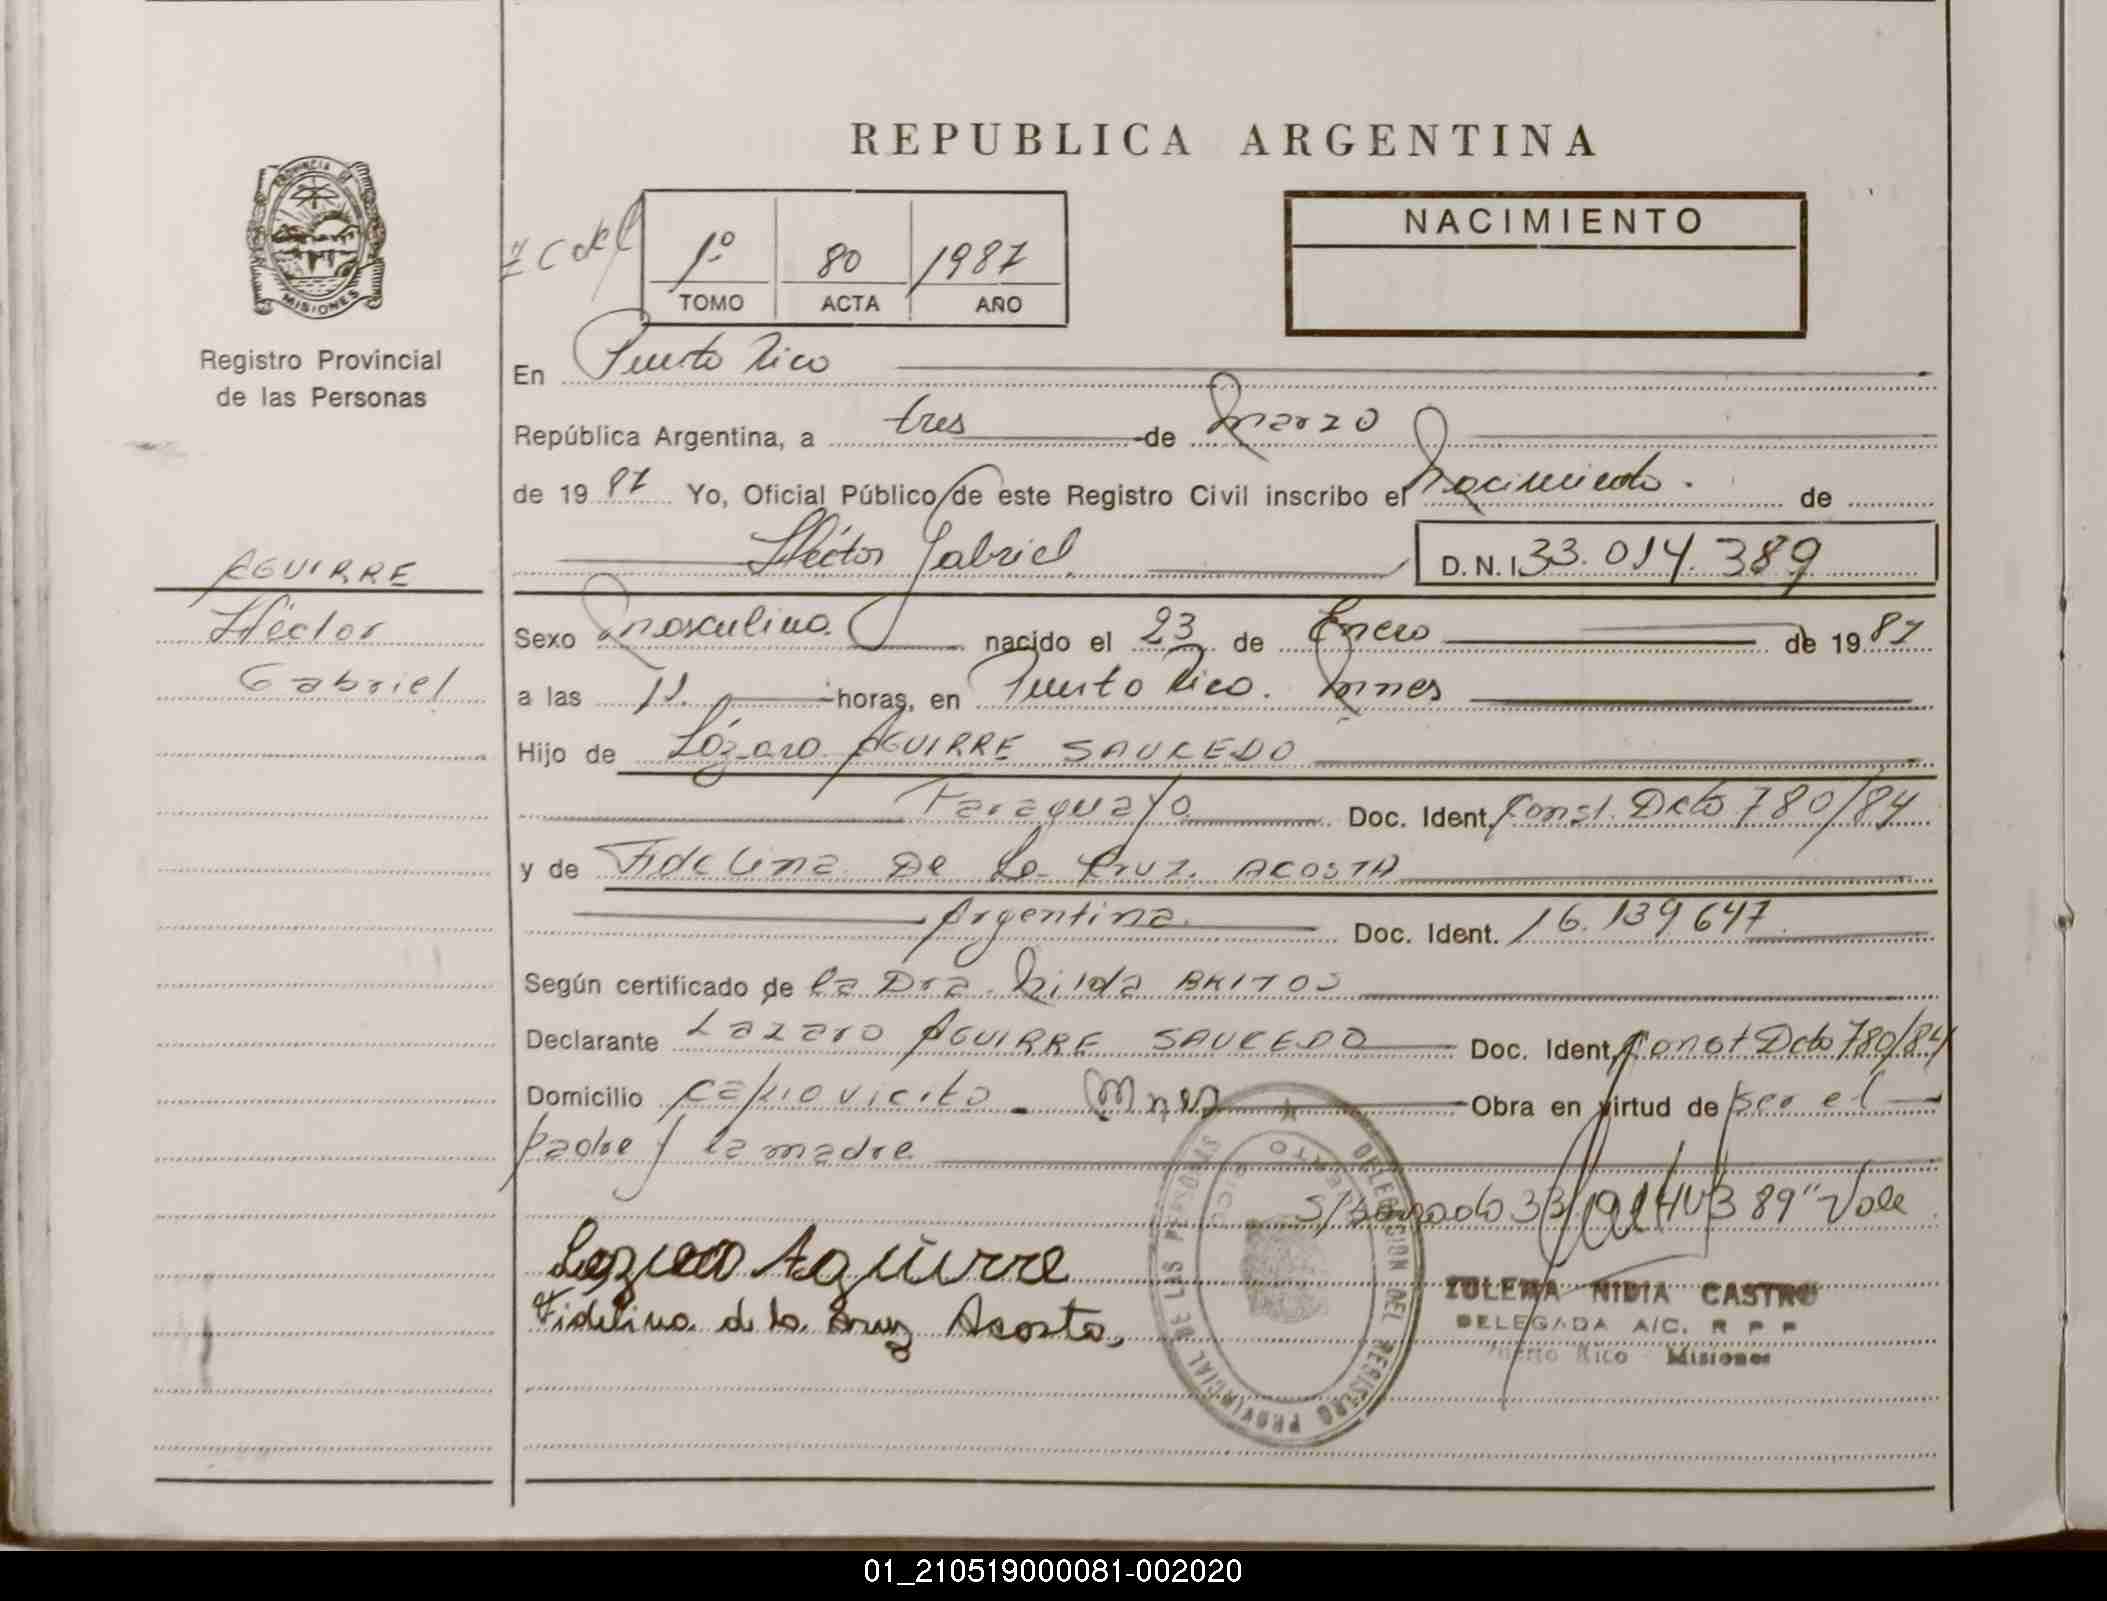 REPUBLICA ARGENTINA
PROVINCIA DE
MISIONES
Registro Provincial
de las Personas
1º 80 1987
TOMO ACTA AÑO
NACIMIENTO
En Puerto Rico
República Argentina, a tres de marzo
de 1987 Yo, Oficial Público de este Registro Civil inscribo el Nacimiento. de
Héctor Gabriel D.N.I. 33.014.389
AGUIRRE
Héctor
Gabriel
Sexo masculino. nacido el 23 de Enero de 1987
a las 11. horas, en Puerto Rico. Mnes
Hijo de Lázaro AGUIRRE SAUCEDO
Paraguayo Doc. Ident. Const. Dcto 780/84
y de Fidelina De La Cruz. ACOSTA
Argentina. Doc. Ident. 16.139647
Según certificado de la Dra. Hilda BRITOS
Declarante Lazaro AGUIRRE SAUCEDO Doc. Ident. Const Dcto 780/84
Domicilio Capiovicito. Mnes Obra en virtud de ser el
padre y la madre
S/borrado 33/014 389" Vale
Lazaro Aguirre
Fidelina de la Cruz Acosta,
DELEGACION DEL REGISTRO PROVINCIAL DE LAS PERSONAS
PUERTO RICO
ZULEMA NIDIA CASTRO
DELEGADA A/C. R P P
Puerto Rico Misiones
01_210519000081-002020